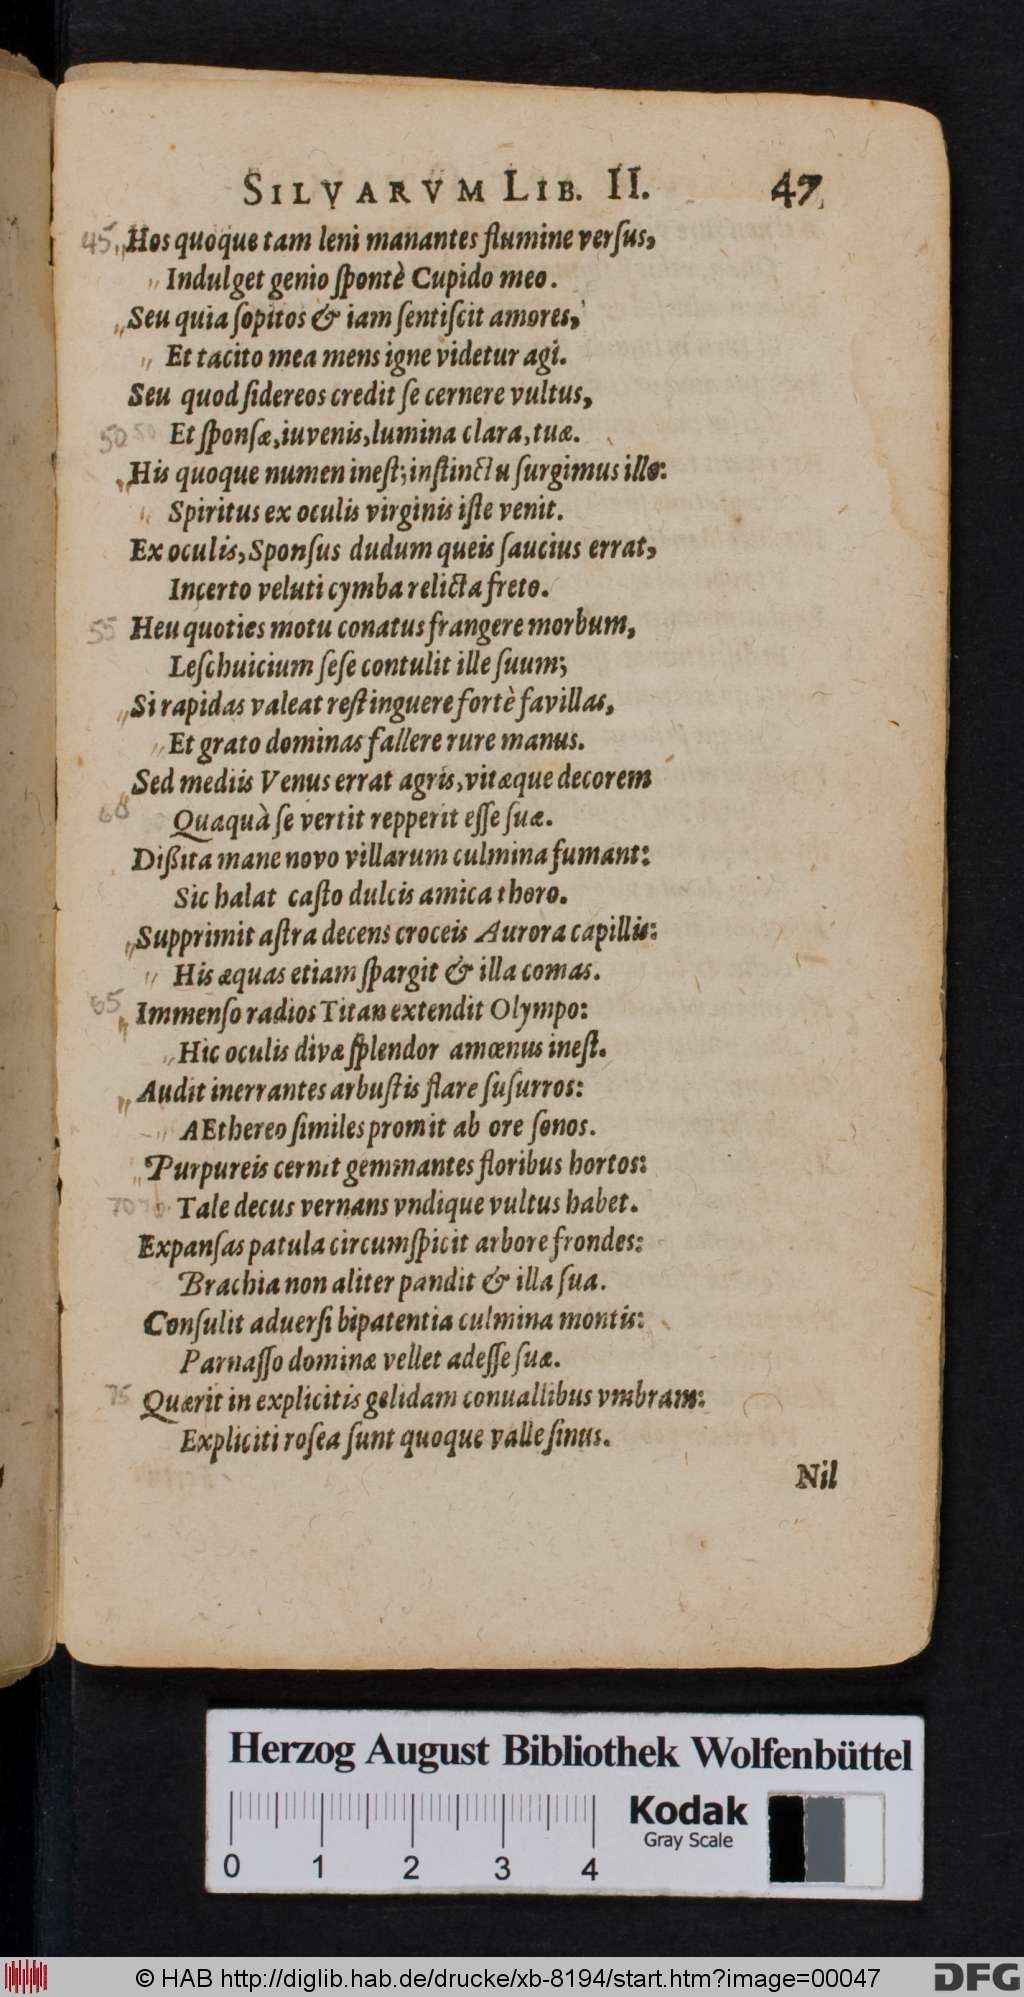 SILVARVM LIB. II. 47
45 „Hos quoque tam leni manantes flumine verſus,
„Indulget genio ſpontè Cupido meo.
„Seu quia ſopitos & iam ſentiſcit amores,
„Et tacito mea mens igne videtur agi.
Seu quod ſidereos credit ſe cernere vultus,
50 50 Et ſponſæ, iuvenis, lumina clara, tuæ.
„His quoque numen ineſt; inſtinctu ſurgimus illo:
„Spiritus ex oculis virginis iſte venit.
Ex oculis, Sponſus dudum queis ſaucius errat,
Incerto veluti cymba relicta freto.
55 Heu quoties motu conatus frangere morbum,
Leſchuicium ſeſe contulit ille ſuum;
„Si rapidas valeat reſtinguere fortè favillas,
„Et grato dominas fallere rure manus.
„Sed mediis Venus errat agris, vitæque decorem
60 Quaquà ſe vertit repperit eſſe ſuæ.
Dißita mane novo villarum culmina fumant:
Sic halat caſto dulcis amica thoro.
„Supprimit aſtra decens croceis Aurora capillis:
„His æquas etiam ſpargit & illa comas.
65 „Immenſo radios Titan extendit Olympo:
„Hic oculis divæ ſplendor amœnus ineſt.
„Audit inerrantes arbuſtis flare ſuſurros:
„AEthereo ſimiles promit ab ore ſonos.
„Purpureis cernit gemmantes floribus hortos:
70 70 Tale decus vernans vndique vultus habet.
Expanſas patula circumſpicit arbore frondes:
Brachia non aliter pandit & illa ſua.
Conſulit aduerſi bipatentia culmina montis:
Parnaſſo dominæ vellet adeſſe ſuæ.
75 Quærit in explicitis gelidam conuallibus vmbram:
Expliciti roſea ſunt quoque valle ſinus.
Nil
Herzog August Bibliothek Wolfenbüttel
Kodak
Gray Scale
0 1 2 3 4
© HAB http://diglib.hab.de/drucke/xb-8194/start.htm?image=00047
DFG